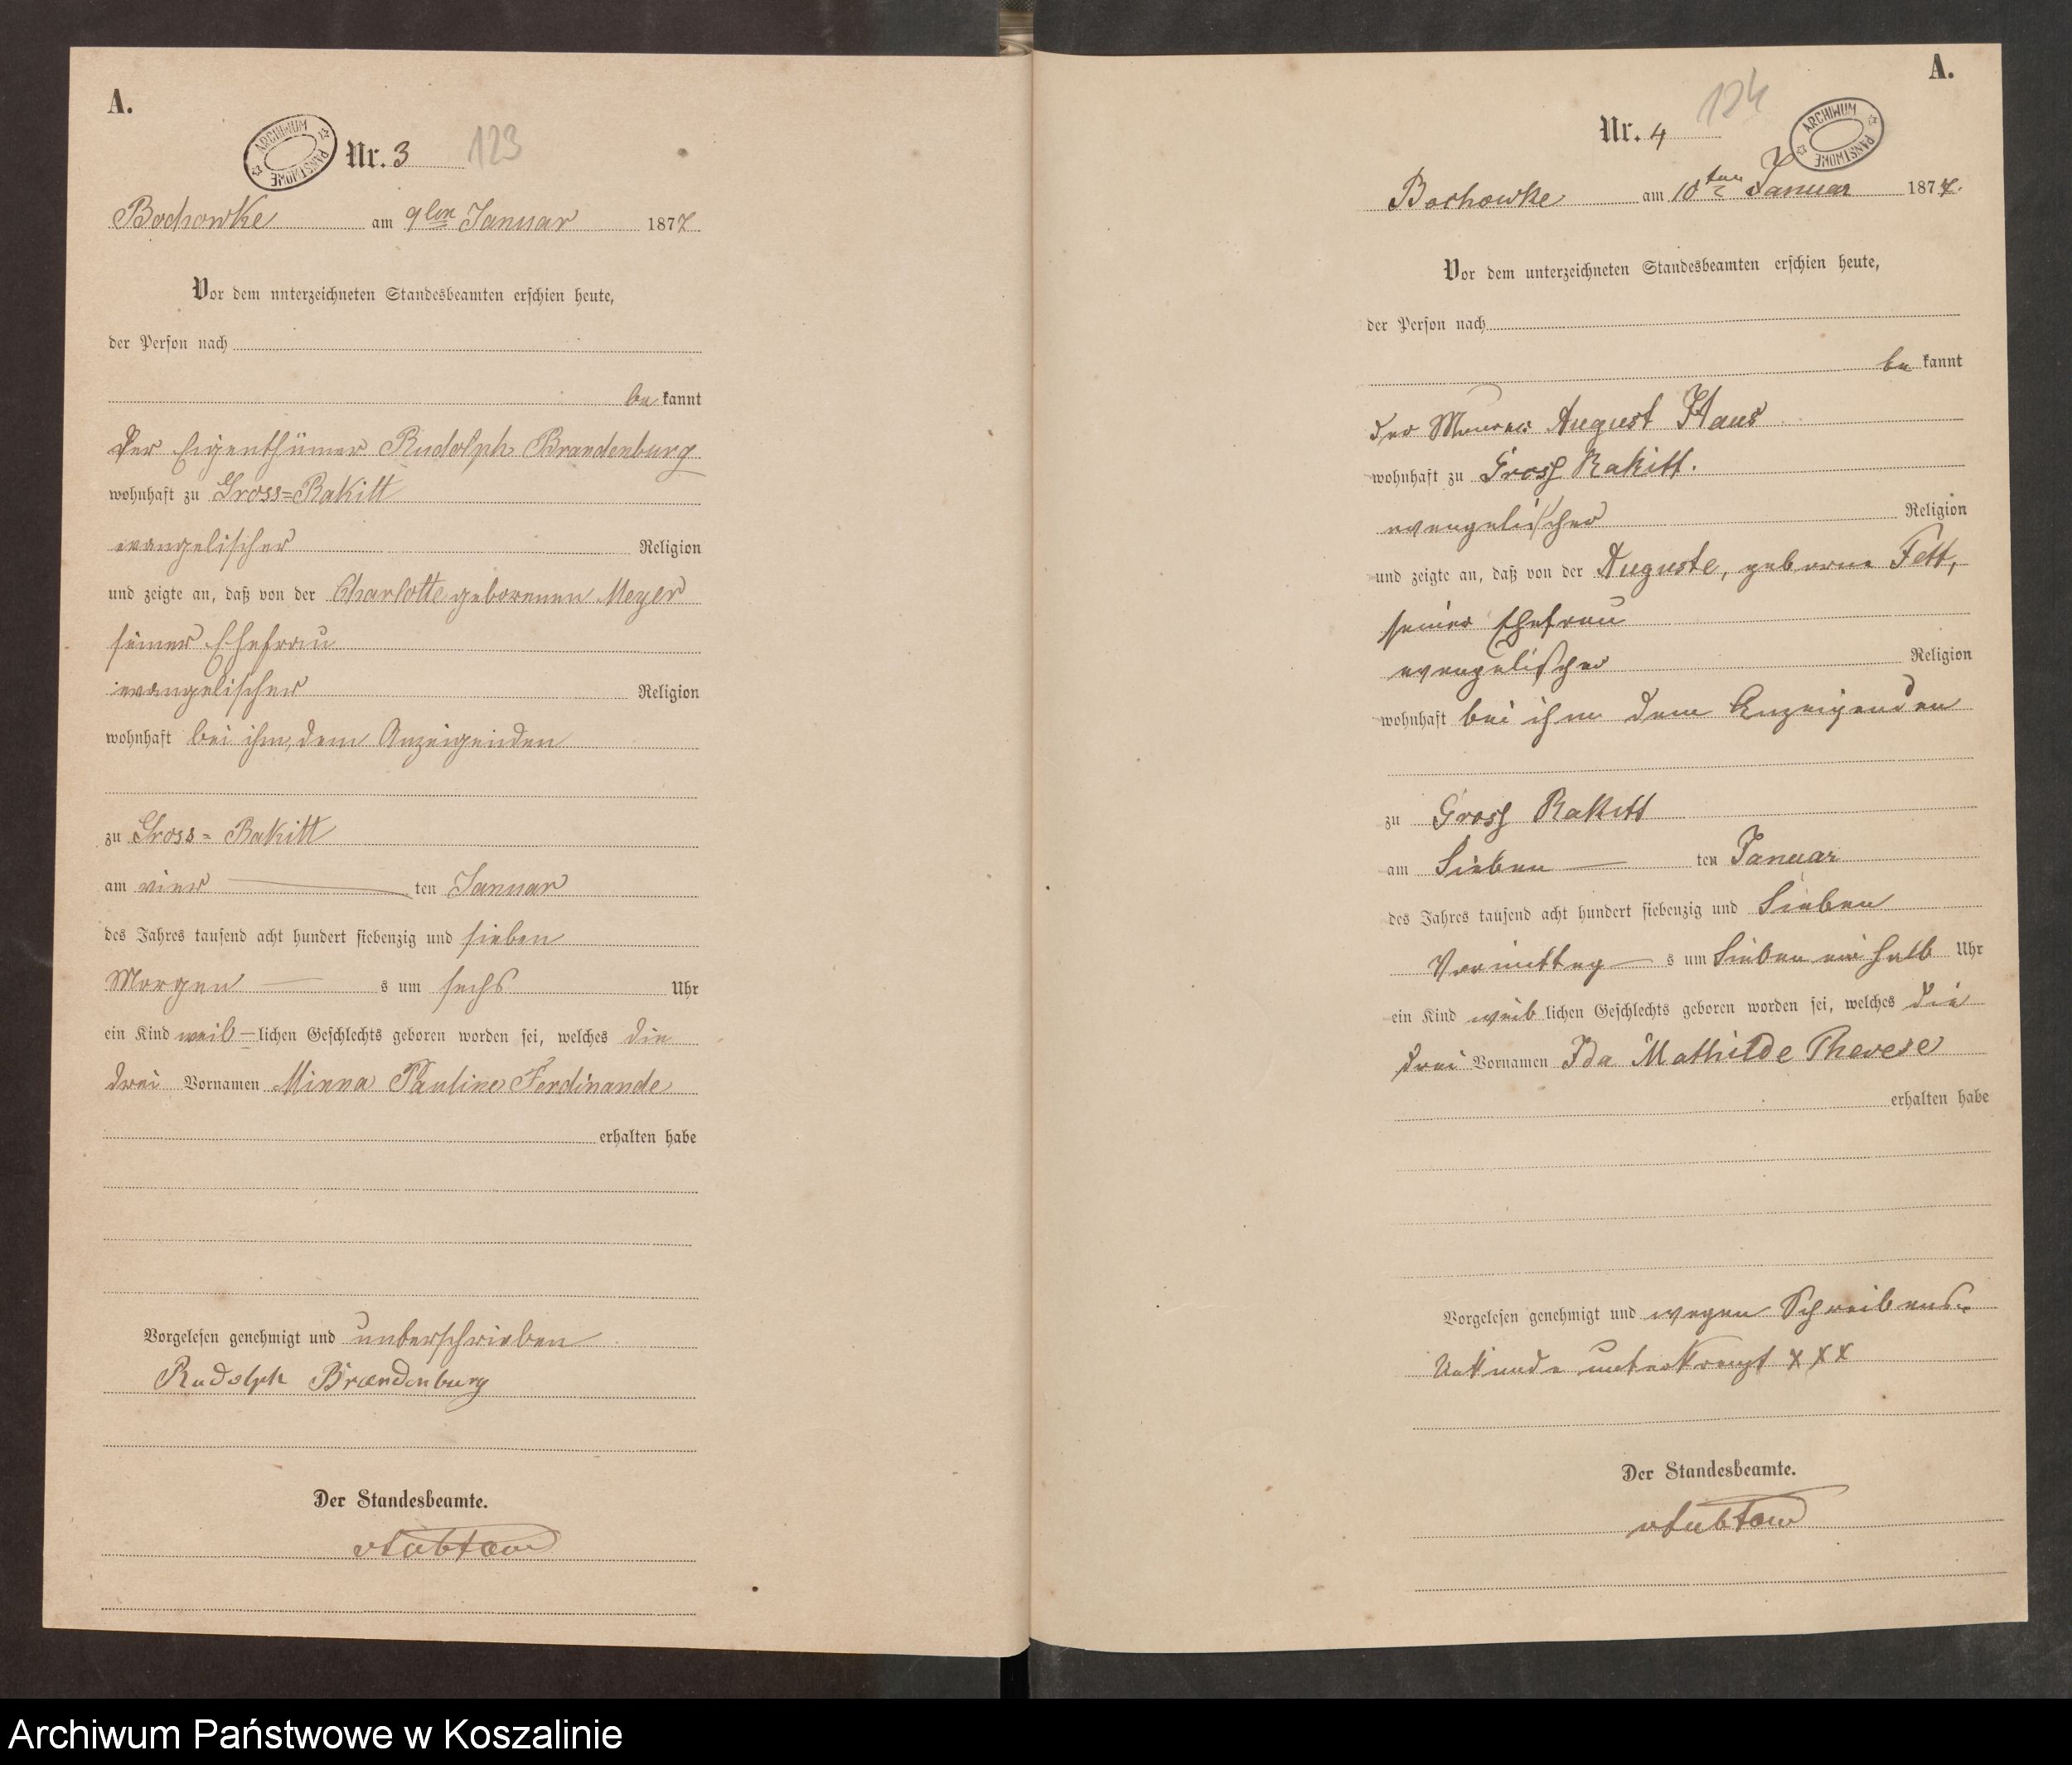 A.
ARCHIWUM PAŃSTWOWE
Nr. 3
123
Bochowke am 9ten Januar 1877.
Vor dem unterzeichneten Standesbeamten erschien heute,
der Person nach
be kannt
der Eigenthümer Rudolph Brandenburg
wohnhaft zu Gross=Rakitt
evangelischer Religion
und zeigte an, daß von der Charlotte geborenen Meyer
seiner Ehefrau
evangelischer Religion
wohnhaft bei ihm, dem Anzeigenden
zu Gross=Rakitt
am vier ten Januar
des Jahres tausend acht hundert siebenzig und sieben
Morgen s um sechs Uhr
ein Kind weib-lichen Geschlechts geboren worden sei, welches die
drei Vornamen Minna Pauline Ferdinande
erhalten habe
Vorgelesen genehmigt und unterschrieben
Rudolph Brandenburg
Der Standesbeamte.
A.
124
ARCHIWUM PAŃSTWOWE
Nr. 4
Bochowke am 10ten Januar 1877.
Vor dem unterzeichneten Standesbeamten erschien heute,
der Person nach
be kannt
der Maurer August Haus
wohnhaft zu Gross Rakitt.
evangelischer Religion
und zeigte an, daß von der Auguste, geborene Fett,
seiner Ehefrau
evangelischer Religion
wohnhaft bei ihm dem Anzeigenden
zu Gross Rakitt
am Sieben ten Januar
des Jahres tausend acht hundert siebenzig und Sieben
Vormittag s um Sieben ein halb Uhr
ein Kind weib lichen Geschlechts geboren worden sei, welches die
drei Vornamen Ida Mathilde Therese
erhalten habe
Vorgelesen genehmigt und wegen Schreibens-
Unkunde unterkreuzt XXX
Der Standesbeamte.
Archiwum Państwowe w Koszalinie